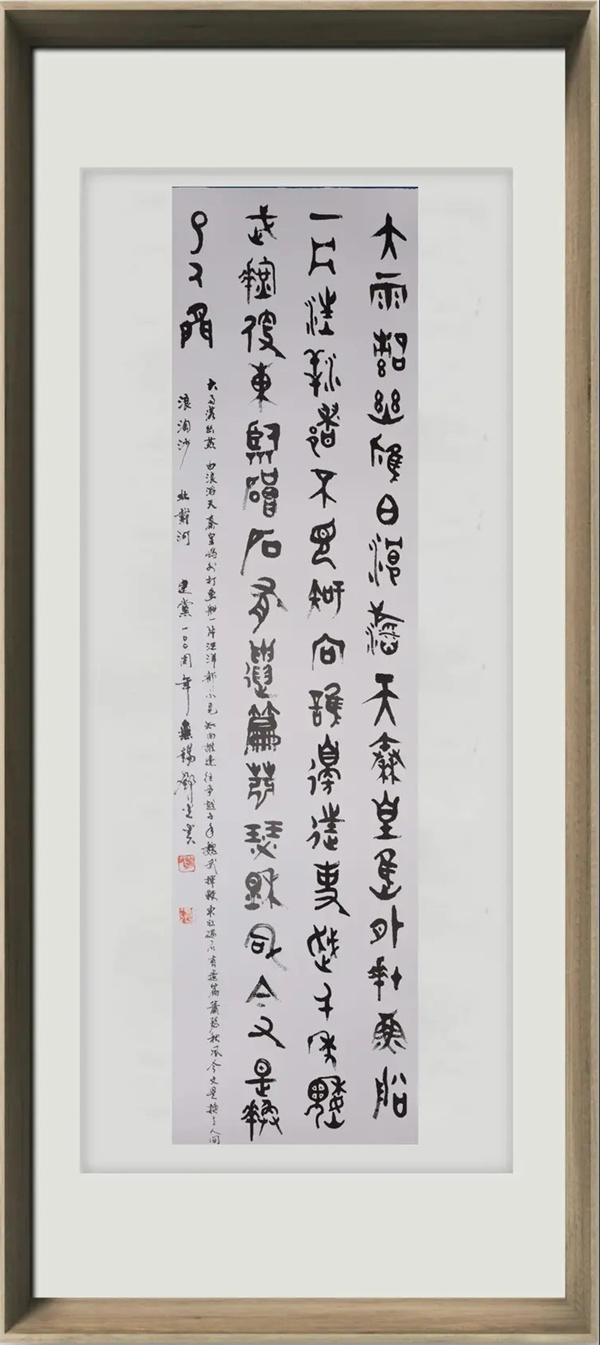 大雨落幽燕白浪滔天秦皇島外打魚船
一片汪洋都不見知向誰邊往事越千年魏
武揮鞭東臨碣石有遺篇蕭瑟秋風今又是換
了人間
大雨落幽燕 白浪滔天秦皇島外打魚船一片汪洋都不見知向誰邊往事越千年魏武揮鞭東臨碣石有遺篇蕭瑟秋風今又是換了人間
浪淘沙 北戴河 建黨一〇〇周年 無錫 書